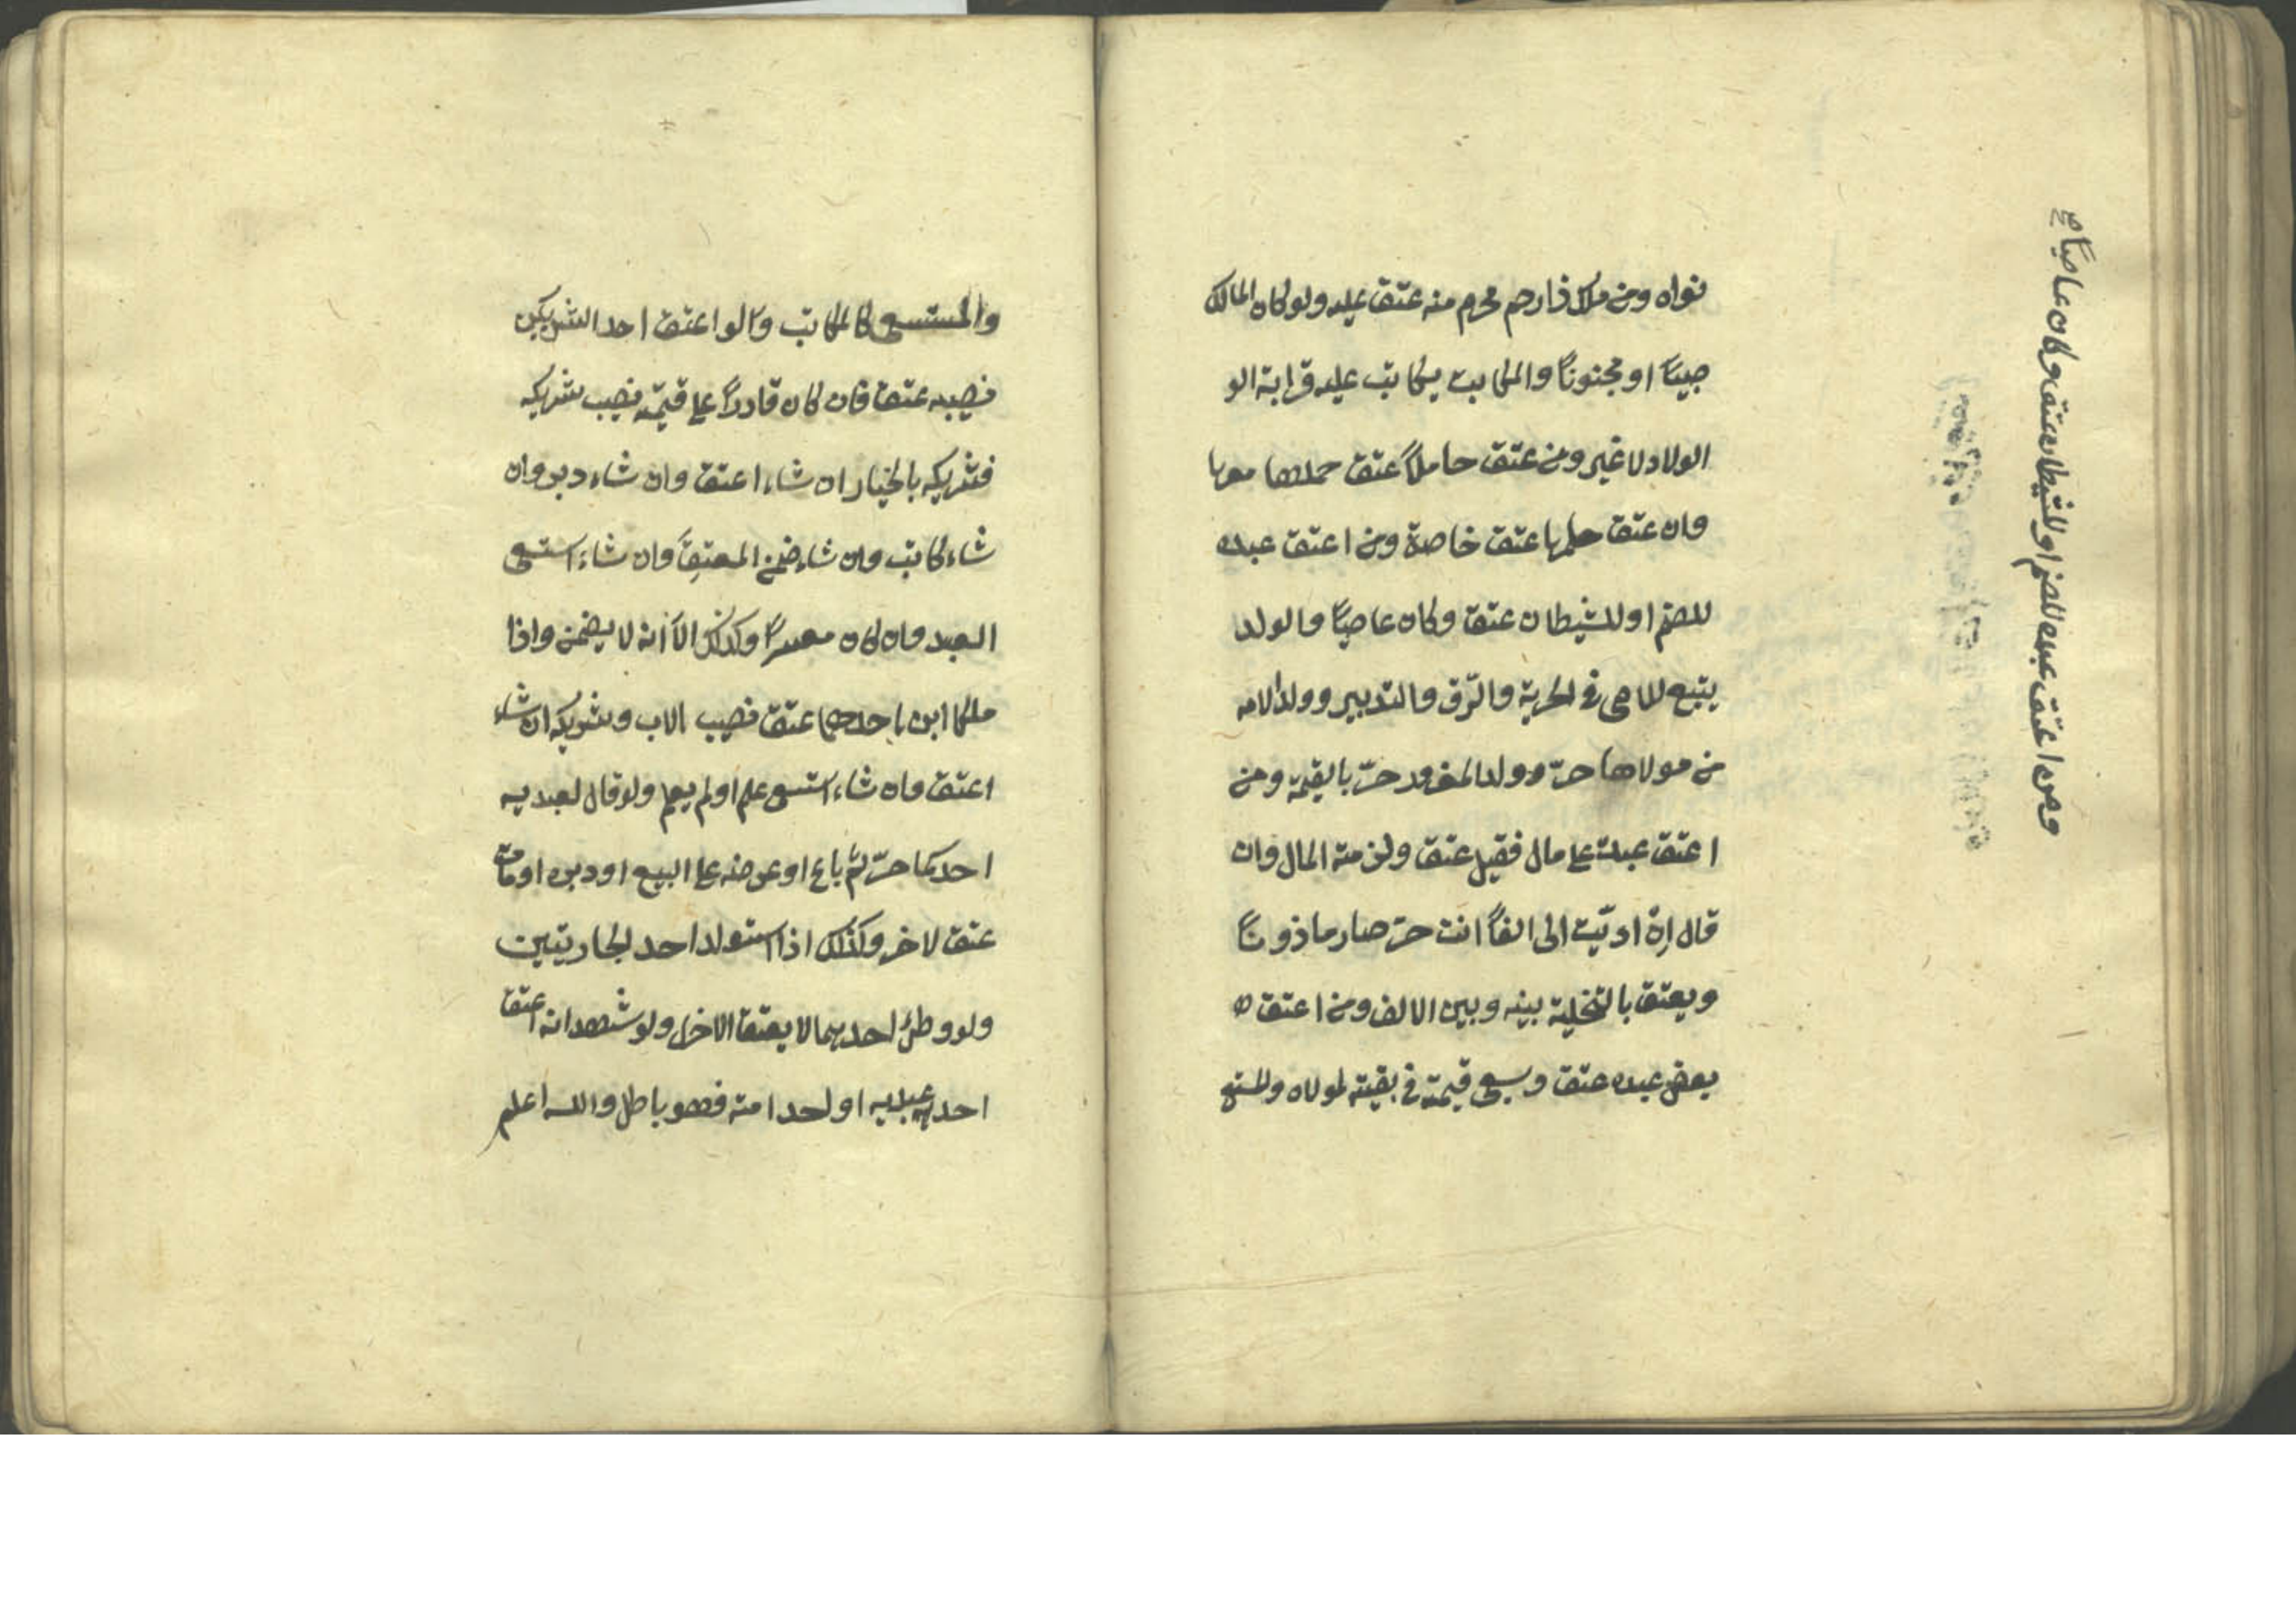 نواه ومن ملك ذا رحم محرم منه عتق عليه ولو كان المالك
صبيًا او مجنونًا والمكاتب يكاتب عليه قرابة الو
الولاد لا غير ومن عتق حاملًا عتق حملها معها
وان عتق حملها عتق خاصة ومن اعتق عبده
للصنم او للشيطان عتق وكان عاصيًا والولد
يتبع للام في الحرية والرّق والتدبير وولد الامه
من مولاها حرّ وولد المغرور حرّ بالقيمة ومن
اعتق عبده على مال فقبل عتق ولزمته المال وان
قال إن ادّيت الى الفًا انت حرّ صار ماذونًا
ويعتق بالتخلية بينه وبين الالف ومن اعتق
بعض عبده عتق وسعى قيمته في بقيته لمولاه والمستسعى
ومن اعتق عبده للصنم او للشيطان عتق وكان عاصيًا صح
والمستسعى كالمكاتب وقالوا اعتق احد الشريكين
نصيبه عتق فان كان قادرًا على قيمته نصيب شريكه
فشريكه بالخيار ان شاء اعتق وان شاء دبر وان
شاء كاتب وان شاء ضمن المعتِق وان شاء استسعى
العبد وان كان معسرًا وكذلك الّا انه لا يضمن واذا
ملكا ابن احدهما عتق نصيب الاب وشريكه ان شاء
اعتق وان شاء استسعى علم او لم يعلم ولو قال لعبديه
احدكما حرّ ثمّ باع او عرضه على البيع او دبره او مات
عتق لاخر وكذلك اذا استولد احد الجاريتين
ولو وطئ احديهما لا يعتق الاخرى ولو شهدا انه اعتق
احد عبديه او احد امته فهو باطل والله اعلم